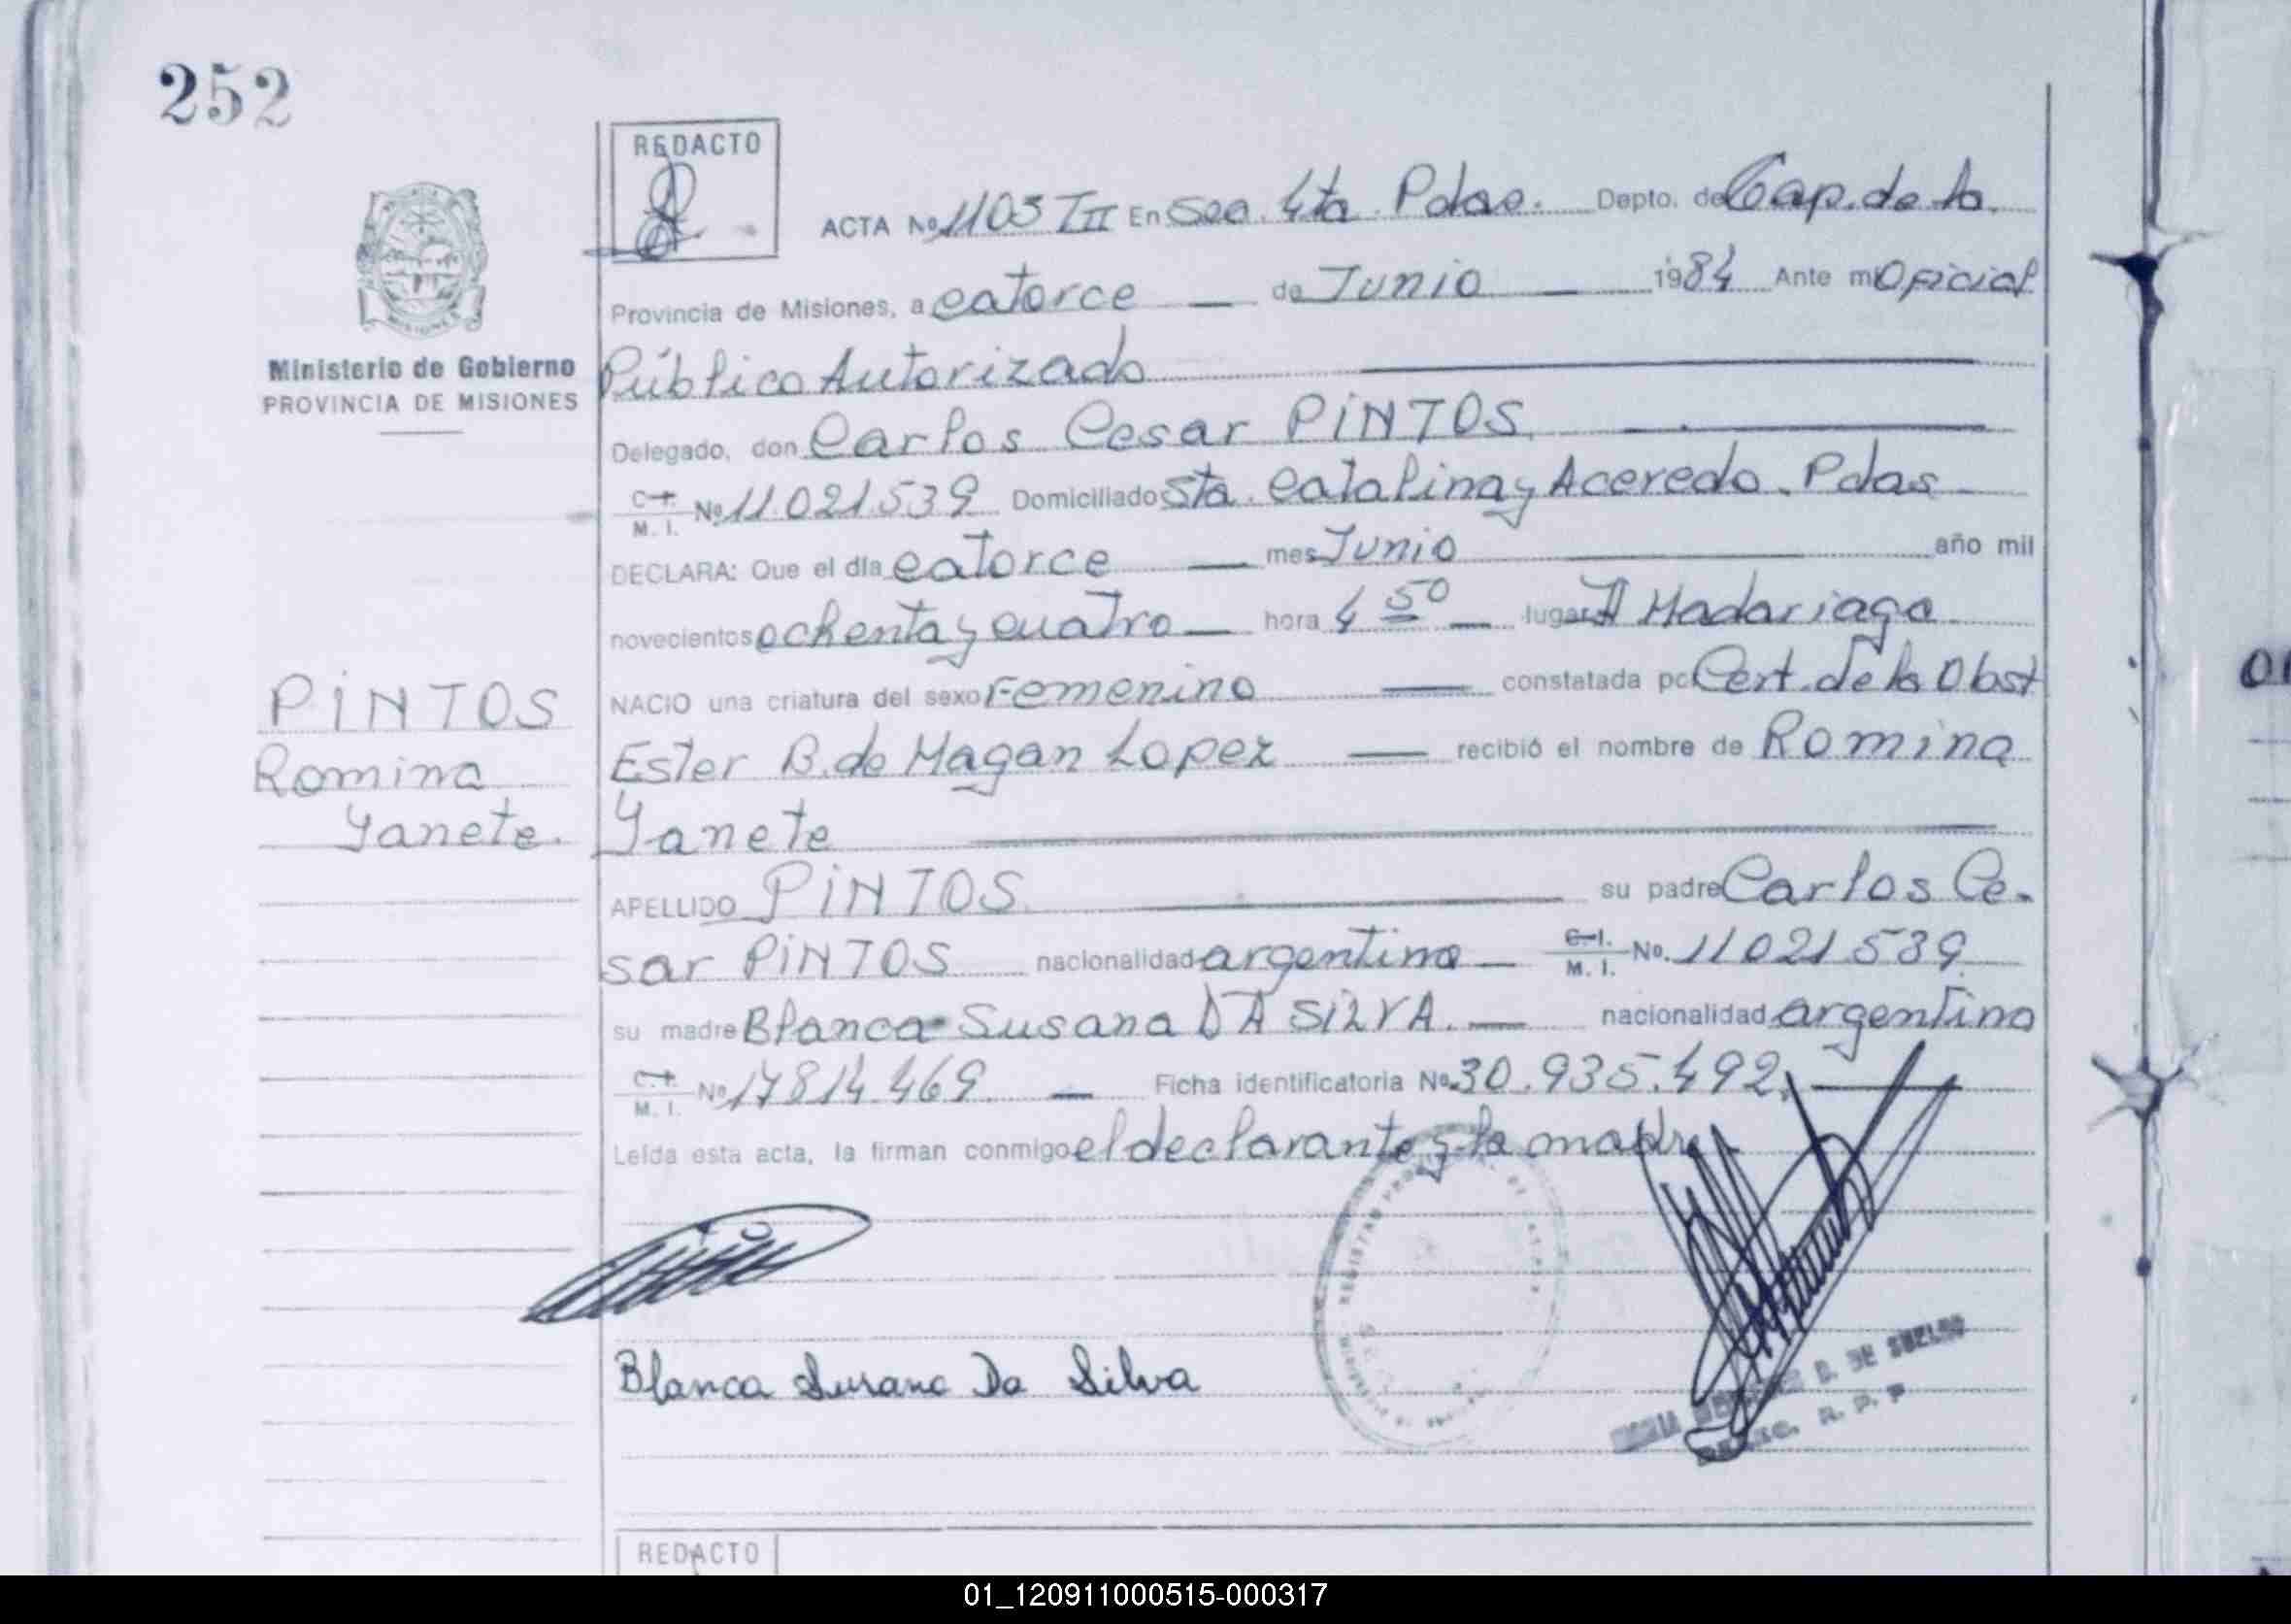 252
REDACTO
ACTA Nº 1103 TII En Sec. 4ta. Pdas. Depto. de Cap. de la
Provincia de Misiones, a catorce — de Junio — 1984 Ante mi Oficial
Ministerio de Gobierno
PROVINCIA DE MISIONES
Público Autorizado
Delegado, don Carlos Cesar PiNTOS
C.I. M. I. Nº 11.021.539 Domiciliado Sta. Catalina y Acevedo. Pdas
DECLARA: Que el día catorce — mes Junio año mil
novecientos ochenta y cuatro — hora 4 50 — lugar Madariaga
NACIO una criatura del sexo Femenino — constatada por Cert. de la Obst
PiNTOS
Romina
Yanete.
Ester B. de Magan Lopez — recibió el nombre de Romina
Yanete
APELLIDO PiNTOS su padre Carlos Ce-
sar PiNTOS nacionalidad argentina — C.I. M. I. No. 11021539
su madre Blanca Susana DA SiLVA. — nacionalidad argentina
C.I. M. I. Nº 17814.469. — Ficha identificatoria Nº 30.935.492.
Leída esta acta, la firman conmigo el declarante y la madre
Blanca Susana Da Silva
B. DE SUELDO
R. P. P
REDACTO
01_120911000515-000317